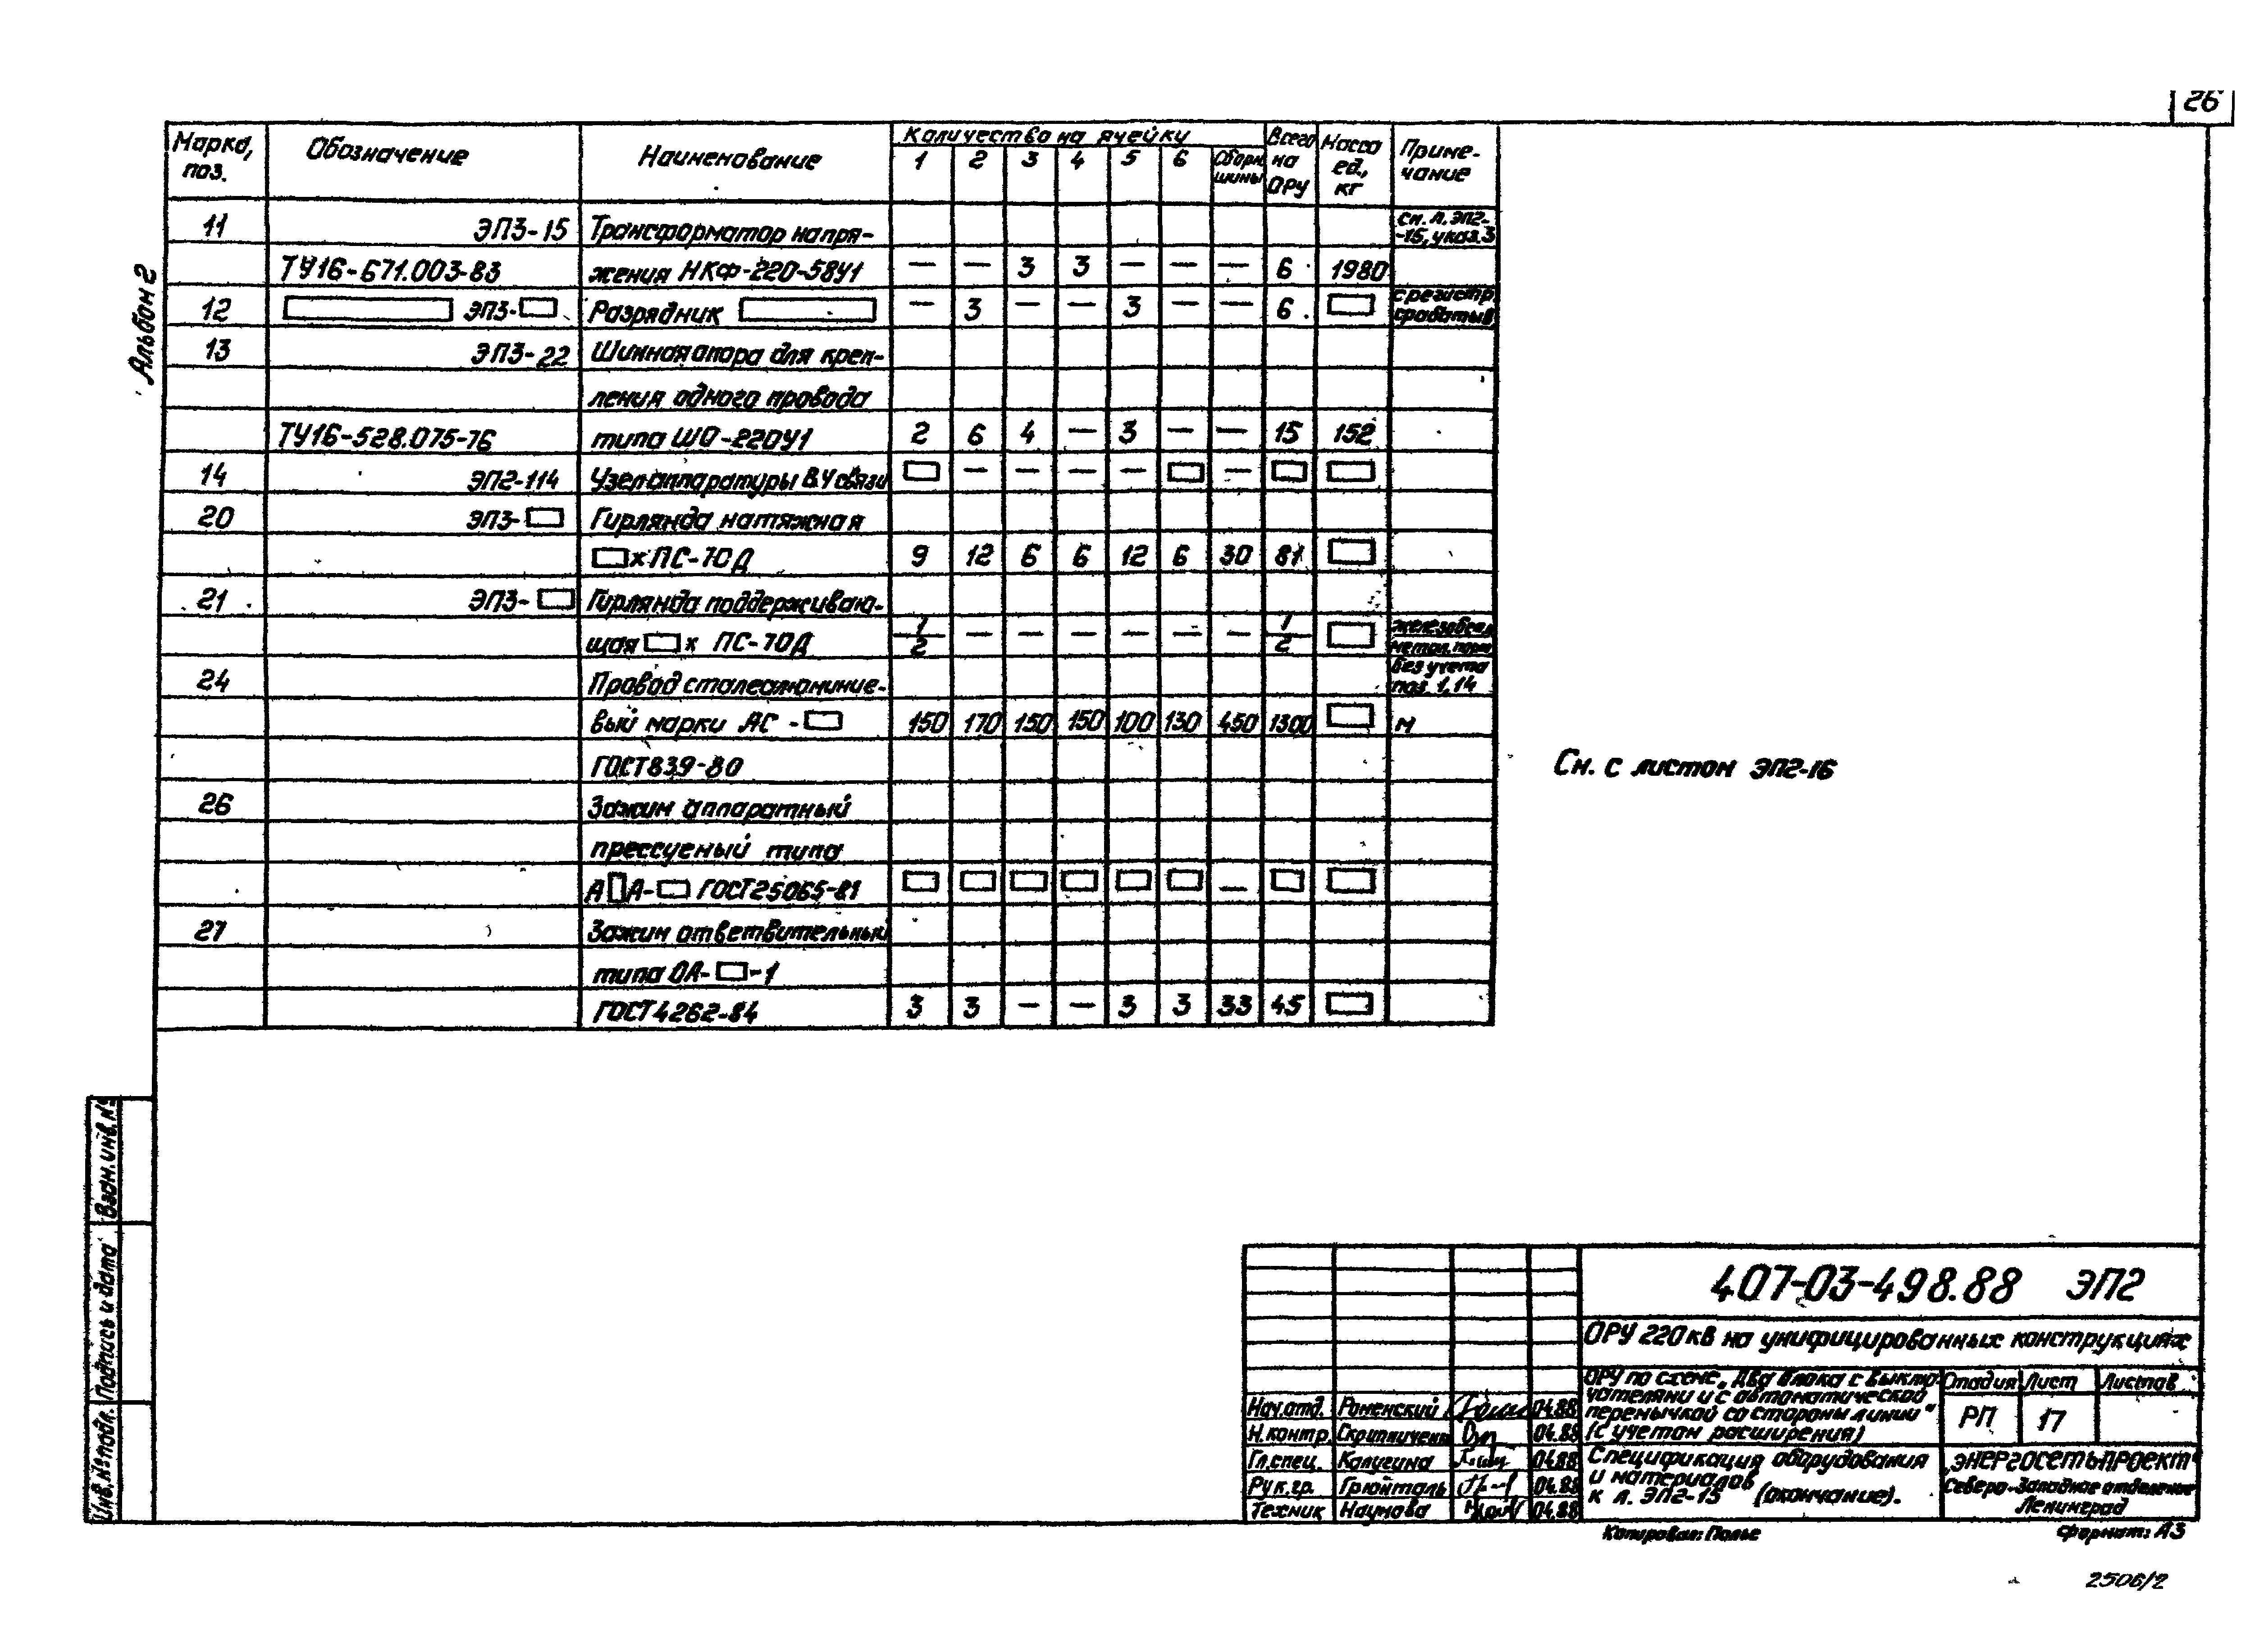 26
Альбом 2
Марка, поз. Обозначение Наименование Количество на ячейку Всего на ОРУ Масса ед., кг Примечание
1 2 3 4 5 6 Сборн. шины
11 ЭП3-15 Трансформатор напря- см. л. ЭП2-
-16, указ.3
ТУ16-671.003-83 жения НКФ-220-58У1 — — 3 3 — — — 6 1980
12 ЭП3- Разрядник — 3 — — 3 — — 6 с регистр.
срабатыв.
13 ЭП3-22 Шинная опора для креп-
ления одного провода
ТУ16-528.075-76 типа ШО-220У1 2 6 4 — 3 — — 15 152
14 ЭП2-114 Узел аппаратуры ВЧ связи — — — — —
20 ЭП3- Гирлянда натяжная
×ПС-70Д 9 12 6 6 12 6 30 81
21 ЭП3- Гирлянда поддерживаю-
щая × ПС-70Д 1/2 — — — — — — 1/2 железобет.
метал. порт.
24 Провод сталеалюминие- Без учета
поз. 1, 14
вый марки АС - 150 170 150 150 100 130 450 1300 м
ГОСТ839-80
26 Зажим аппаратный
прессуемый типа
А А- ГОСТ25065-81 —
27 Зажим ответвительный
типа ОА- -1
ГОСТ4262-84 3 3 — — 3 3 33 45
См. с листом ЭП2-16
Взам. инв. №
Подпись и дата
Инв. № подл.
407-03-498.88 ЭП2
ОРУ 220 кВ на унифицированных конструкциях
ОРУ по схеме „Два блока с выклю-
чателями и с автоматической
перемычкой со стороны линии"
(с учетом расширения)
Стадия Лист Листов
РП 17
Нач.отд. Роменский 04.88
Н.контр. 04.88
Гл.спец. Калугина 04.88
Рук.гр. Грюнталь 04.88
Техник Наумова 04.88
Спецификация оборудования
и материалов
к л. ЭП2-15 (окончание).
„ЭНЕРГОСЕТЬПРОЕКТ"
Северо-Западное отделение
Ленинград
Копировал: Полье Формат: А3
2506/2